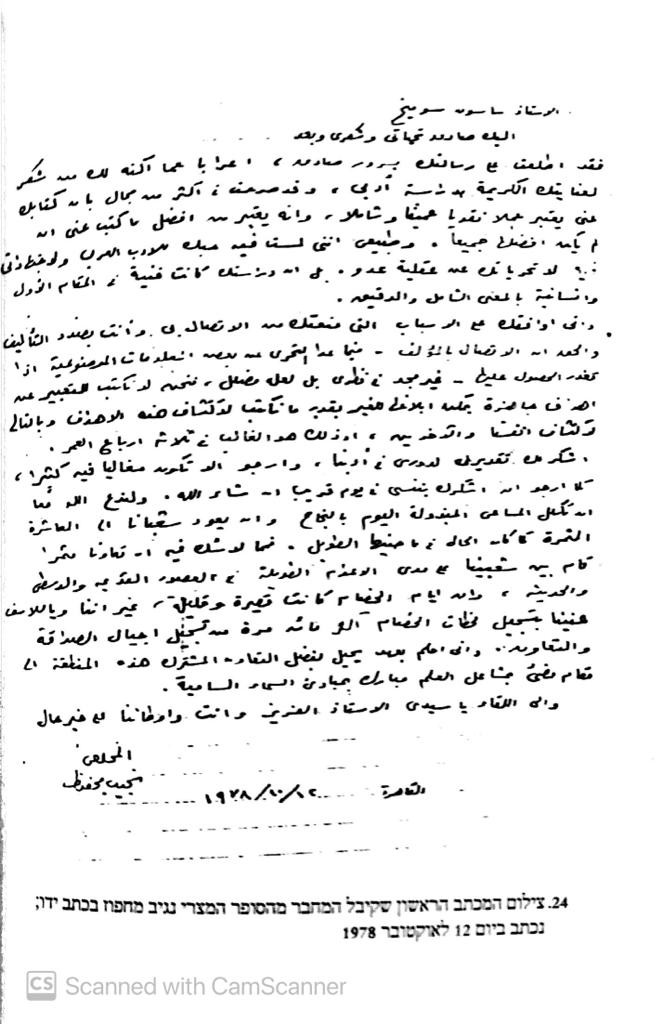 الاستاذ ساسون سوميخ
اليك صادق تحياتى وشكرى وبعد
فقد اطلعت على رسالتك بسرور صادق، اعرابا عما اكنه لك من شكر
لعنايتك الكريمة بدراسة أدبى، وقد صرحت فى أكثر من مجال بان كتابك
عنى يعتبر عملا نقديا عميقا وشاملا، وانه يعتبر من افضل ما كتب عنى ان
لم يكن افضلها جميعا. وطبيعى اننى لمست فيه حبك للادب العربى
لا تحرياتك عن عقلية عدو. بل ان دراستك كانت فنية فى المقام الأول
وانسانية بالمعنى الشامل والدقيق.
وانى اوافقك على الاسباب التى منعتك من الاتصال بى وأنت بصدد التأليف
والحق ان الاتصال بالمؤلف - فيما عدا التحرى عن بعض المعلومات الموضوعية اذا
تعذر الحصول عليها - غير مجد فى نظرى بل لعله مضلل، فنحن لا نكتب للتعبير عن
اهداف جاهزة يمكن ابلاغها للغير بقدر ما نكتب لاكتشاف هذه الاهداف وبالتالى
لاكتشاف انفسنا والآخرين، او ذلك هو الغالب فى ثلاثة ارباع العمر.
اشكرك تقديرك لدورى فى أدبنا، وارجو الا تكون مغاليا فيه كثيرا،
كما ارجو ان اشكرك بنفسى فى يوم قريب ان شاء الله. ولندع الله معا
ان تكلل المساعى المبذولة اليوم بالنجاح وان يعود شعبانا الى العاشرة
المثمرة كما كان الحال فى ماضينا الطويل. فما لا شك فيه ان تعاونا مثمرا
قام بين شعبينا على مدى الاعوام الطويلة فى العصور القديمة والوسطى
والحديثة، وان ايام الخصام كانت قصيرة وقليلة، غير اننا وياللاسف
عنينا بتسجيل لحظات الخصام اكثر مائة مرة من تسجيل اجيال الصداقة
والتعاون. وانى احلم بعهد يحيل بفضل التعاون المشترك هذه المنطقة الى
مقام مضئ بمشاعل العلم مبارك بمبادئ السماء السامية.
والى اللقاء يا سيدى الاستاذ العزيز وانت واوطاننا على خير حال
المخلص
نجيب محفوظ
القاهرة ١٢/١٠/١٩٧٨
24. צילום המכתב הראשון שקיבל המחבר מהסופר המצרי נגיב מחפוז בכתב ידו;
נכתב ביום 12 לאוקטובר 1978
CS Scanned with CamScanner